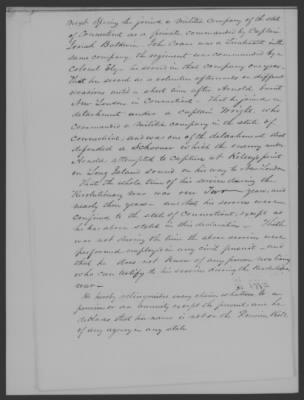 next Spring he joined a militia Company of the state
of Connecticut as a private commanded by Captain
Josiah Baldwin. John Crane was a Lieutenant in the
same company the regiment was commanded by a
Colonel Ely - he served in that company one year.
That he served as a volunteer afterwards on different
occasions until a short time after Arnold burnt
New London in Connecticut - That he joined a
detachment under a Captain Wright, who
commanded a militia company in the state of
Connecticut, and was one of the detachment that
defended a Schooner which the enemy under
Arnold attempted to Capture at
on Long Island sound on his way to New London
That the whole time of his service during the
Revolutionary war was over Two years, and
nearly three years - and that his services were
confined to the state of Connecticut, except as
he has above stated in this declaration - That he
was not during the time the above services were
performed employed in any civil pursuit - and
that he does not know of any person now living
who can testify to his services during the Revolution
war -
He hereby relinquishes every claim whatever to a
pension or an annuity except the present and he
declares that his name is not on the Pension Roll
of any agency in any state